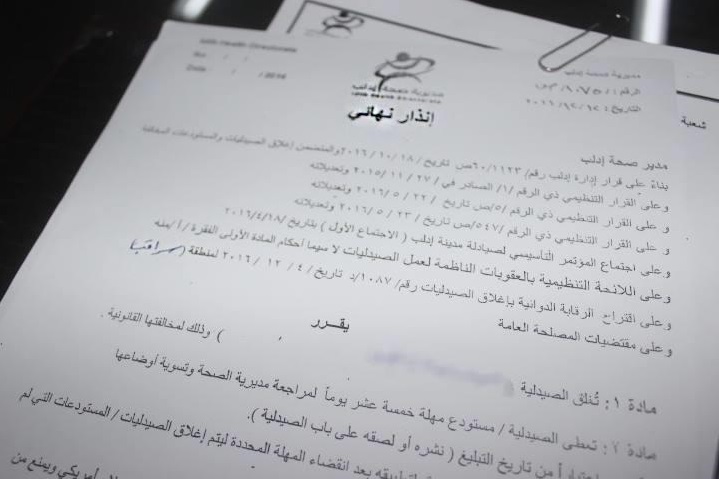 Idlib Health Directorate
No / /
Date / / 2016
مديرية صحة إدلب
مديرية صحة إدلب
الرقم:
التاريخ:
شعبة
إنذار نهائي
مدير صحة إدلب
بناءً على قرار إدارة إدلب رقم/٦٠/١١٢٣ص تاريخ/١٨/ ١٠ / ٢٠١٦ والمتضمن إغلاق الصيدليات والمستودعات المخالفة
وعلى القرار التنظيمي ذي الرقم /١/ الصادر في / ٢٧ / ١١ / ٢٠١٥ وتعديلاته
و على القرار التنظيمي ذي الرقم /٥/ص تاريخ / ٢٢ / ٥ / ٢٠١٦ وتعديلاته
و على القرار التنظيمي ذي الرقم /٥٤٧/ص تاريخ / ٢٣ / ٥ / ٢٠١٦ وتعديلاته
وعلى اجتماع المؤتمر التأسيسي لصيادلة مدينة إدلب ( الاجتماع الأول ) بتاريخ /٢٠١٦/٤/١٨
وعلى اللائحة التنظيمية بالعقوبات الناظمة لعمل الصيدليات لا سيما أحكام المادة الأولى الفقرة / أ /منه
وعلى اقتراح الرقابة الدوائية بإغلاق الصيدليات رقم/ ١٠٨٧/د تاريخ / ٤ / ١٢ / ٢٠١٦ لمنطقة ( سراقب )
وعلى مقتضيات المصلحة العامة
يقرر
مادة ١: تُغلق الصيدلية ( ) وذلك لمخالفتها القانونية .
مادة ٢: تعطى الصيدلية / مستودع مهلة خمسة عشر يوماً لمراجعة مديرية الصحة وتسوية أوضاعها
اعتباراً من تاريخ التبليغ ( نشره أو لصقه على باب الصيدلية ).
بعد انقضاء المهلة المحددة ليتم إغلاق الصيدليات / المستودعات التي لم
أمريكي ويمنع من